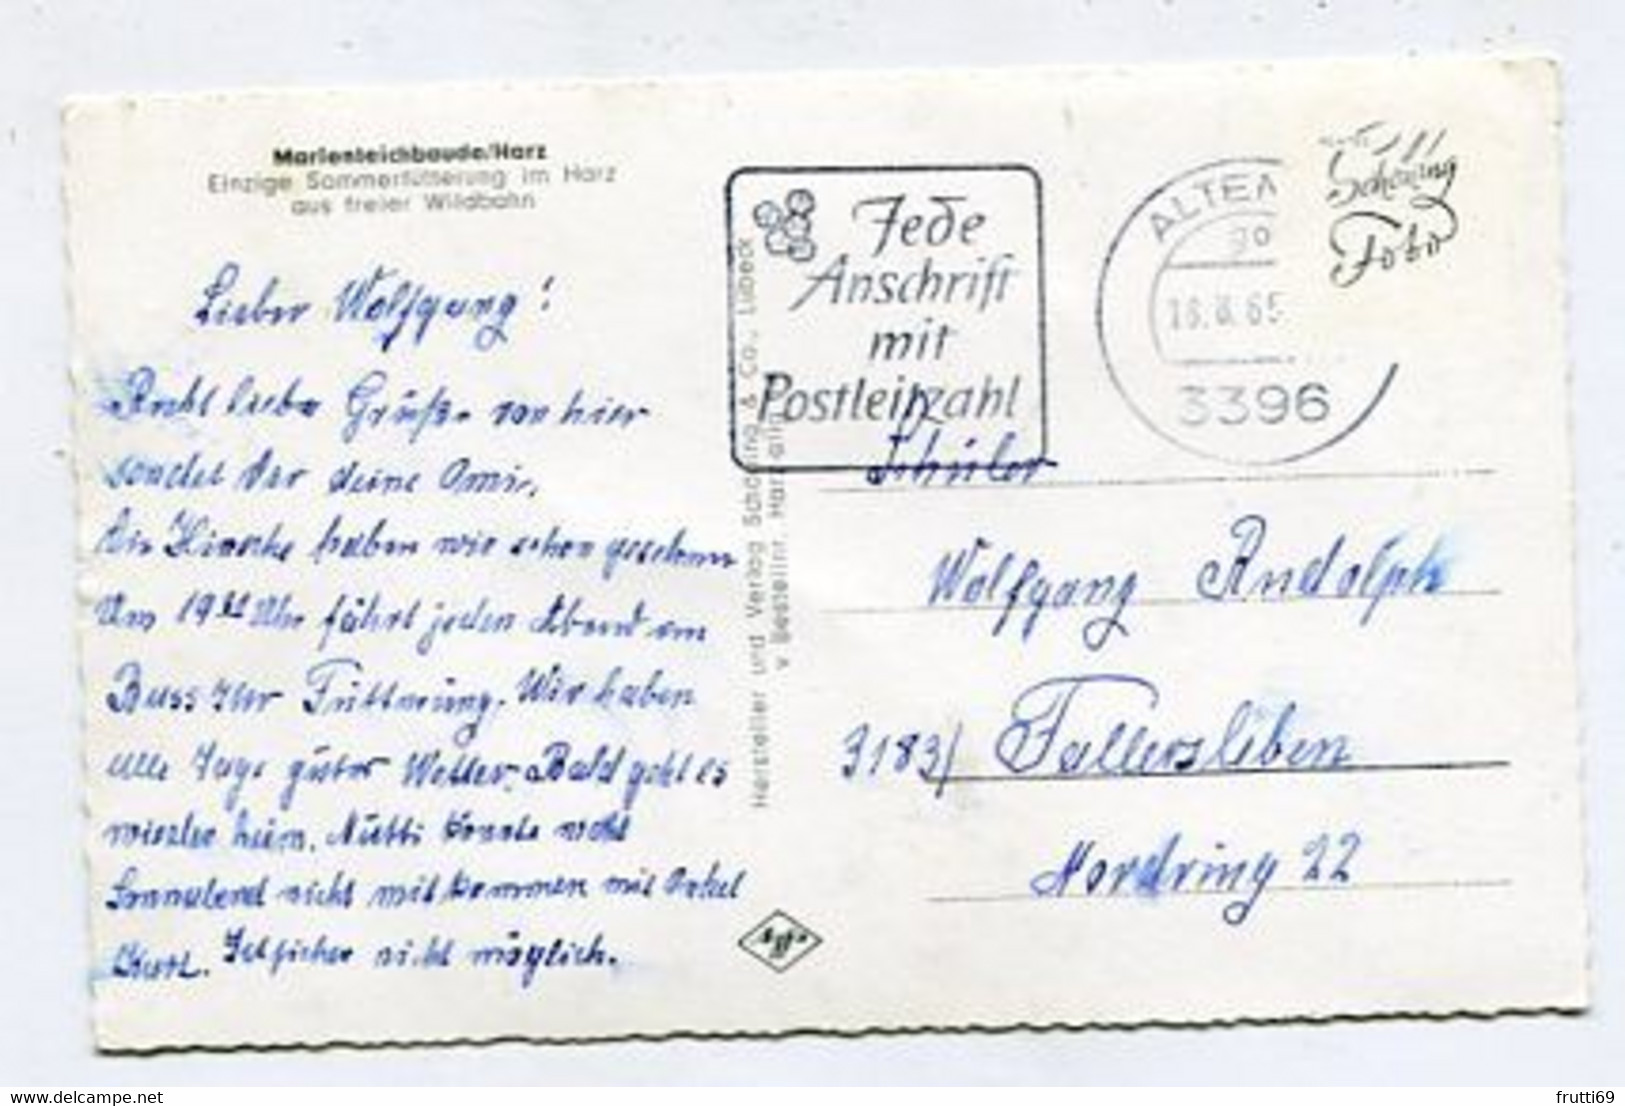 Marienteichbaude/Harz
Einzige Sommerfütterung im Harz
aus freier Wildbahn
Lieber Wolfgang!
Recht liebe Grüße von hier
sendet Dir deine Omi.
Die Hirsche haben wir schon gesehen
Um 19 Uhr fährt jeden Abend ein
Buss zur Fütterung. Wir haben
alle Tage gutes Wetter. Bald geht es
wieder heim. Mutti konnte wohl
Sonnabend nicht mit kommen mit Onkel
Kurt. Ist sicher nicht möglich.
Hersteller und Verlag Schöning & Co., Lübeck
v Bestellnr. Harz
Agfa
Jede
Anschrift
mit
Postleitzahl
ALTENA
90
65
3396
Schöning
Foto
Schüler
Wolfgang Rudolph
3183/ Fallersleben
Nordring 22
frutti69